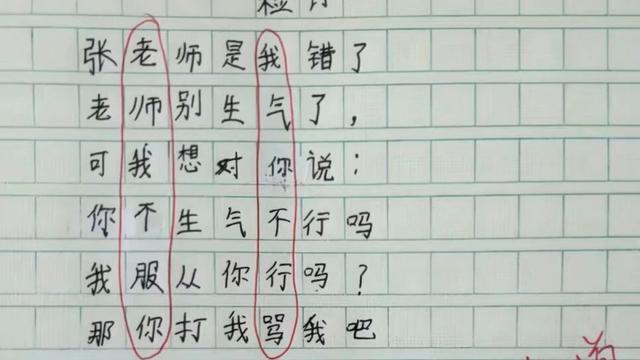 张老师是我错了
老师别生气了，
可我想对你说：
你不生气不行吗
我服从你行吗？
那你打我骂我吧